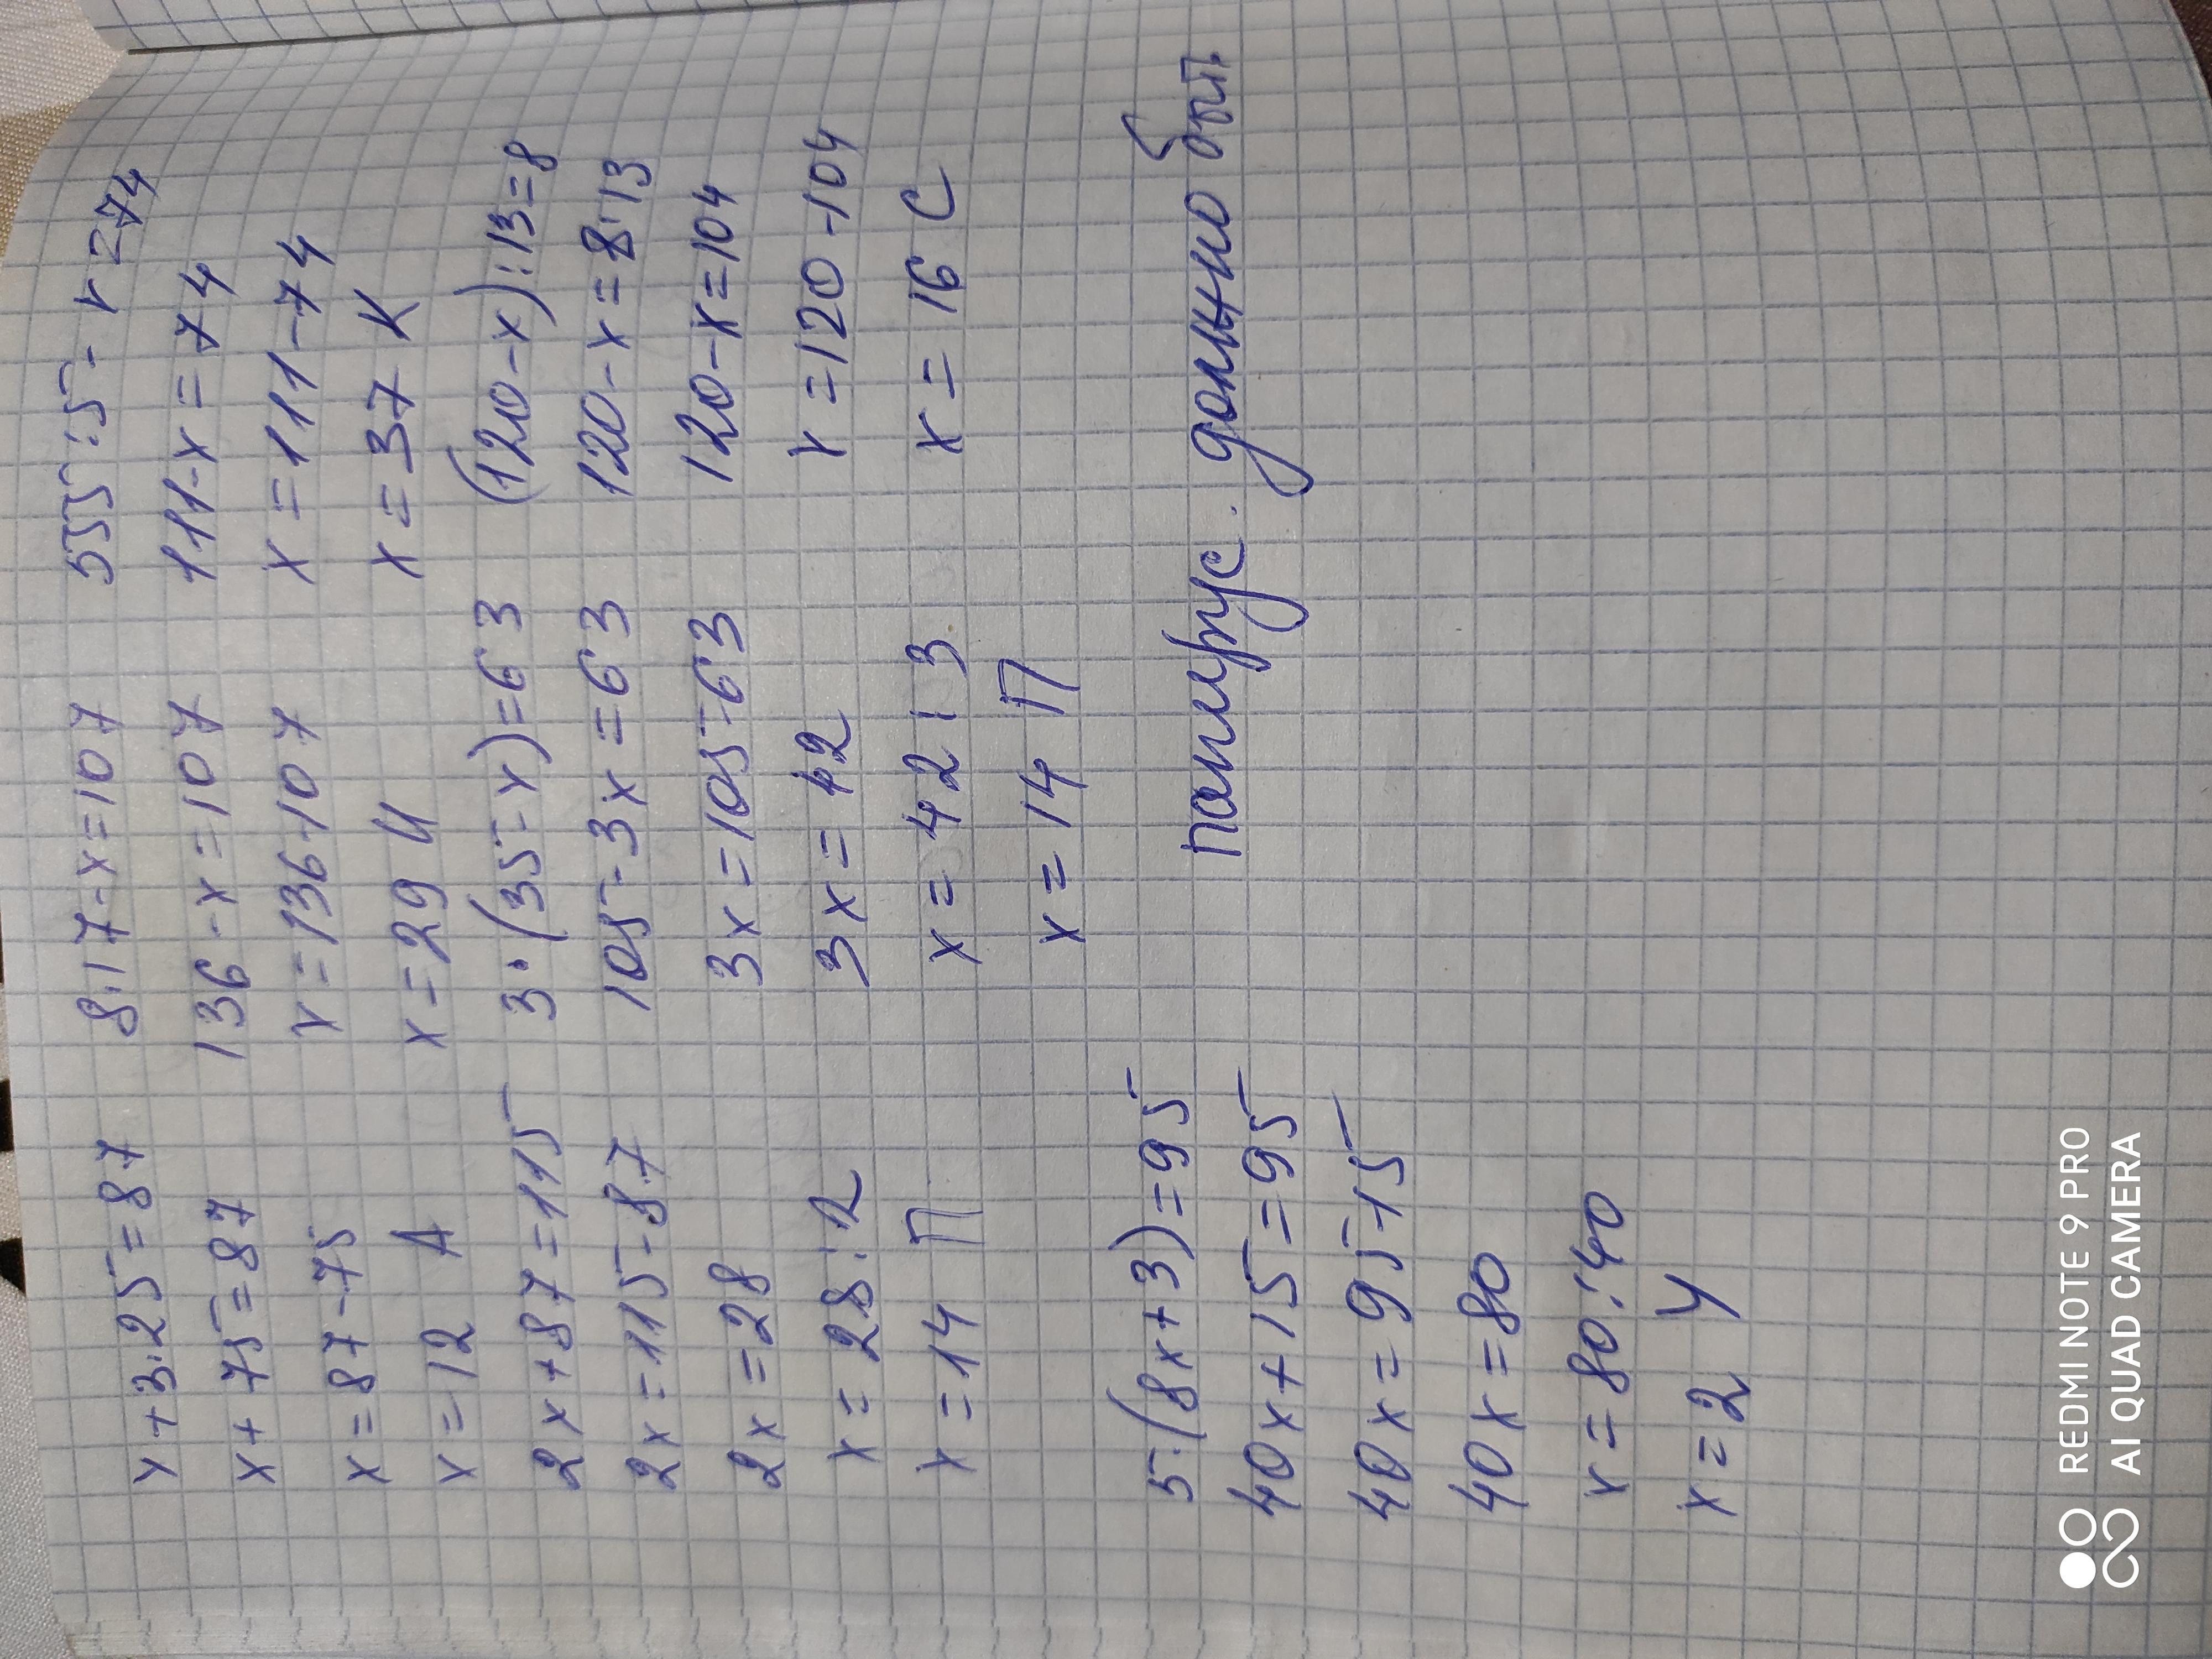 x+3·25=87
x+75=87
x=87-75
x=12 А
8·17-x=107
136-x=107
x=136-107
x=29 И
555:5-x=74
111-x=74
x=111-74
x=37 К
2x+87=115
2x=115-87
2x=28
x=28:2
x=14 П
3·(35-x)=63
105-3x=63
3x=105-63
3x=42
x=42:3
x=14 П
(120-x):13=8
120-x=8·13
120-x=104
x=120-104
x=16 С
5·(8x+3)=95
40x+15=95
40x=95-15
40x=80
x=80:40
x=2 У
папирус. должно быт.
REDMI NOTE 9 PRO
AI QUAD CAMERA